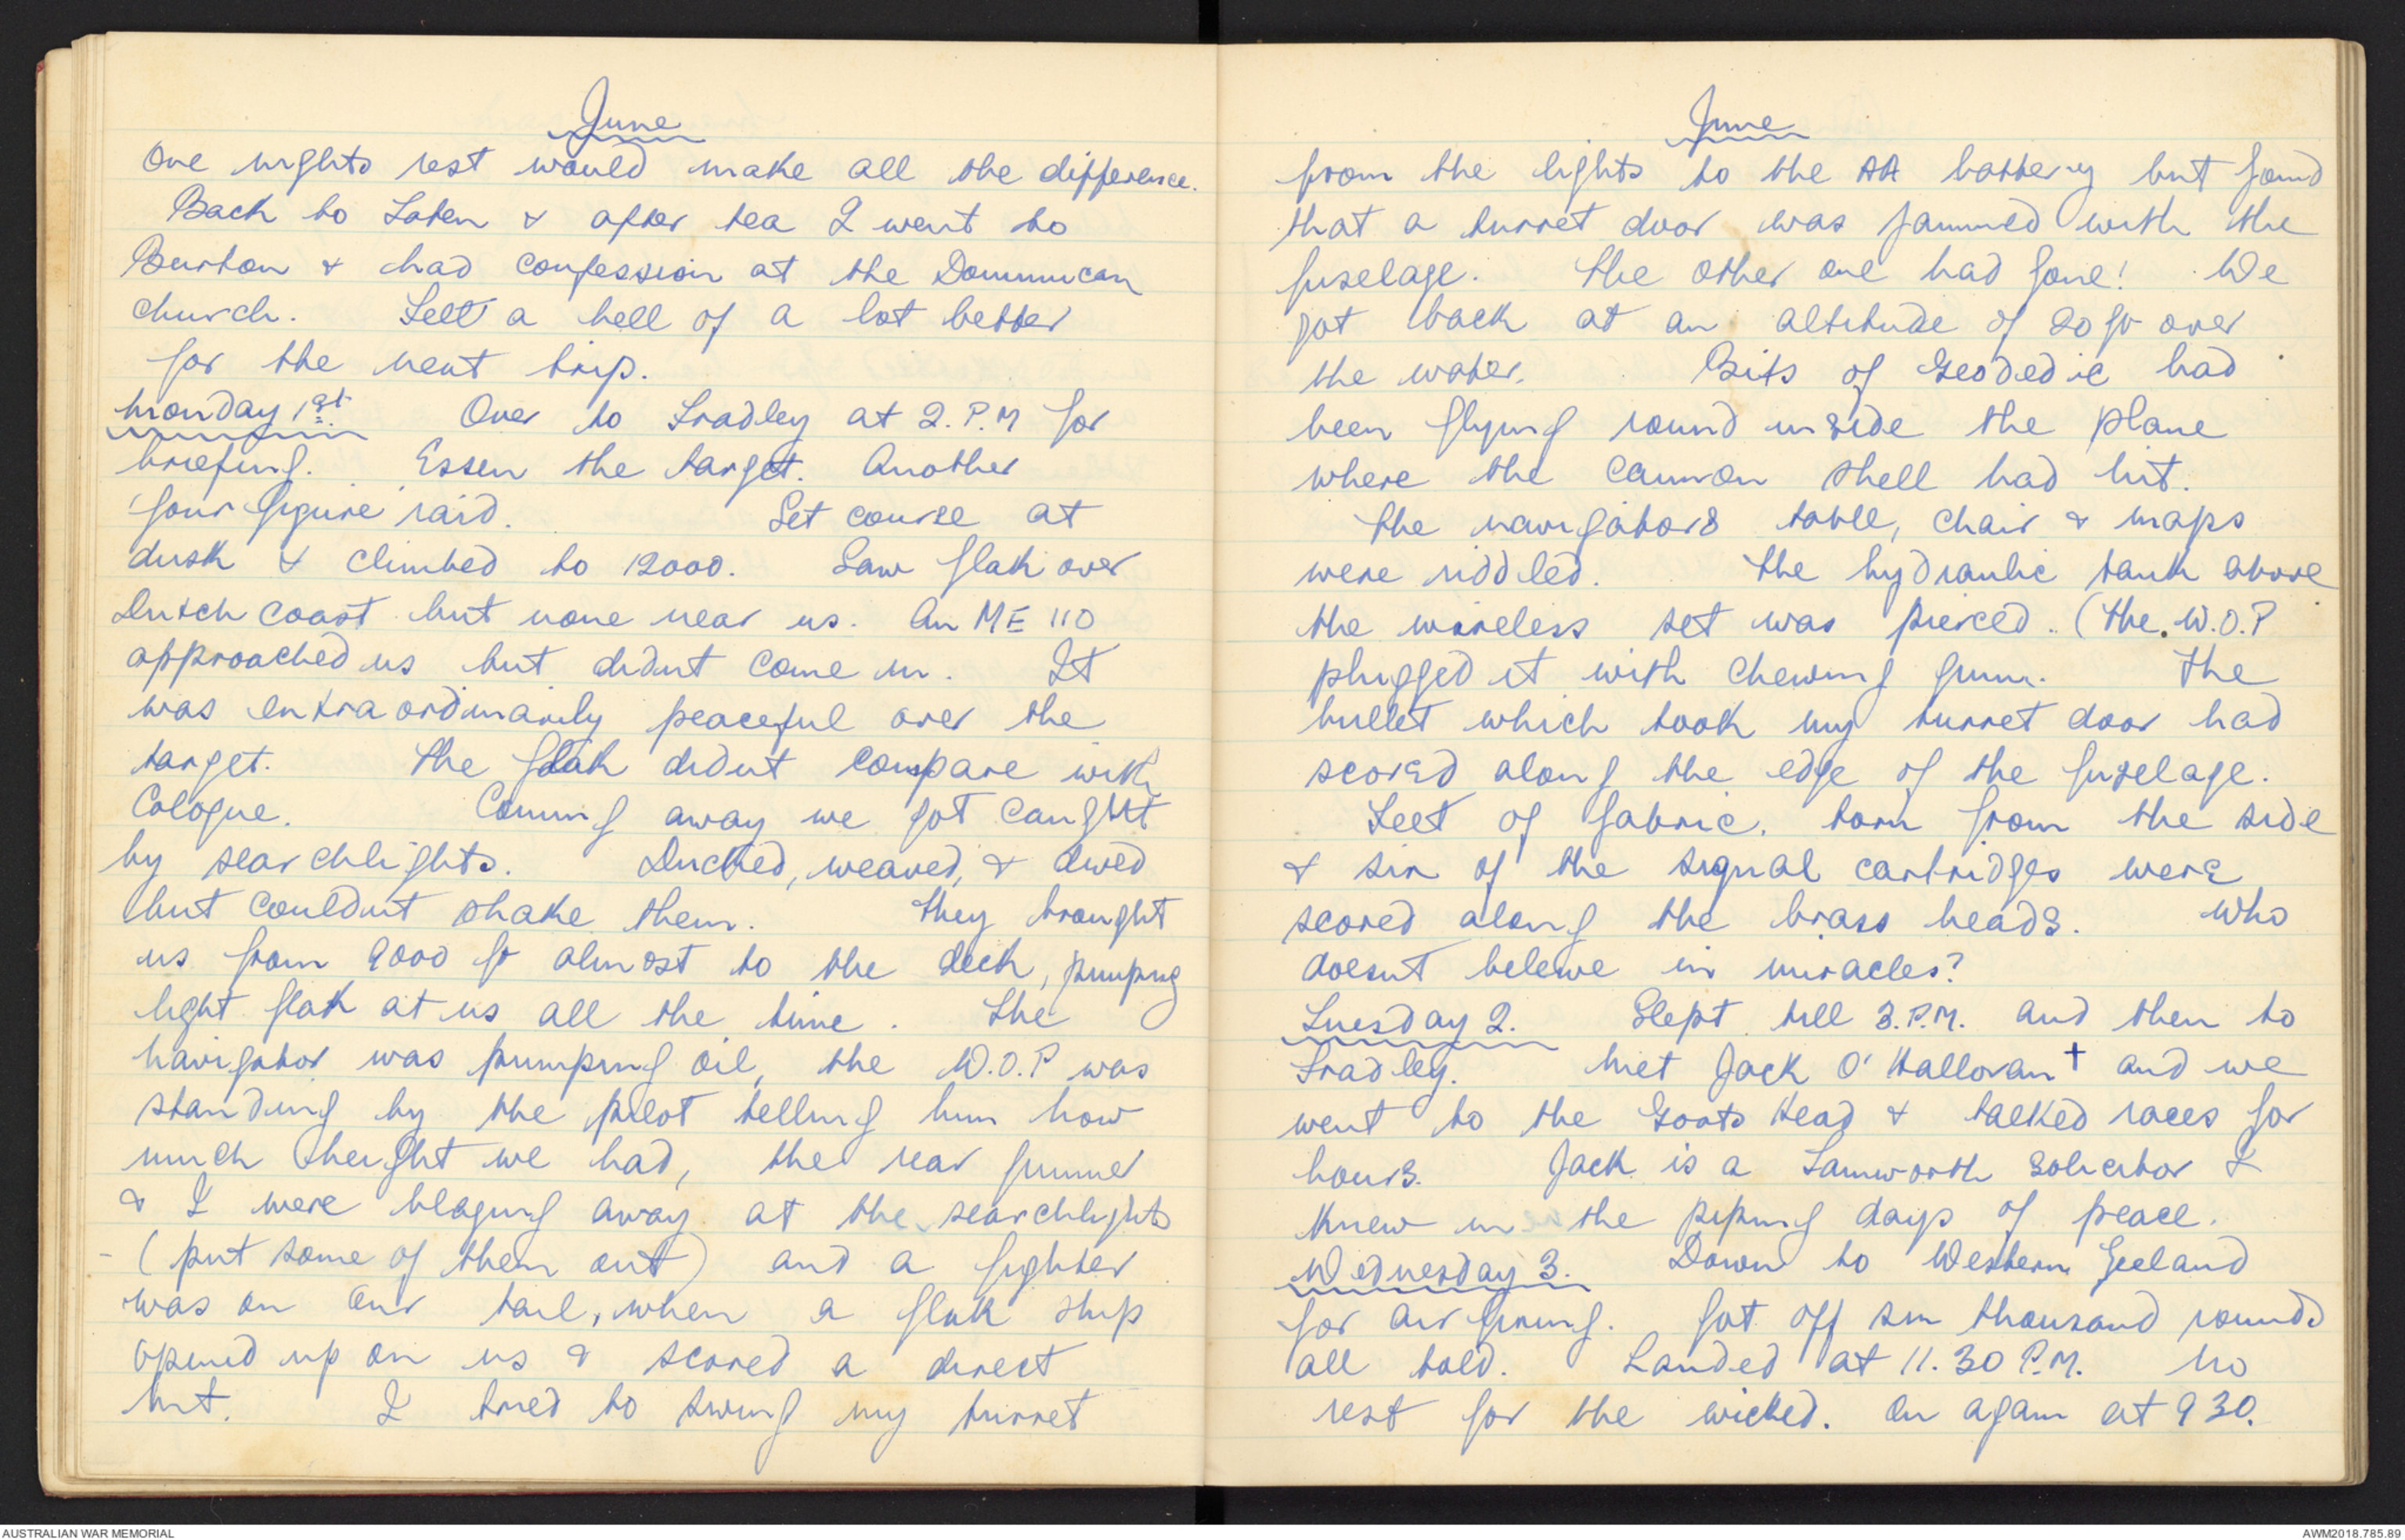 June
One nights rest would make all the difference.
Back to Laten & after tea I went to
Burton & had confession at the Dominican
church. Felt a hell of a lot better
for the next trip.
Monday 1st. Over to Fradley at 2. P.M for
briefing. Essen the target. Another
'four figure' raid. Set course at
dusk & climbed to 12000. Saw flak over
Dutch coast but none near us. An ME 110
approached us but didnt come in. It
was extraordinarily peaceful over the
target. The flak didnt compare with
Cologne. Coming away we got caught
by searchlights. Ducked, weaved, & dived
but couldnt shake them. They brought
us from 9000 ft almost to the deck, pumping
light flak at us all the time. The
navigator was pumping oil, the W.O.P was
standing by the pilot telling him how
much height we had, the rear gunner
& I were blazing away at the searchlights
- (put some of them out) and a fighter
was on our tail, when a flak ship
opened up on us & scored a direct
hit. I tried to swing my turret
June
from the lights to the AA battery but found
that a turret door was jammed with the
fuselage. The other one had gone! We
got back at an altitude of 20 ft over
the water. Bits of Geodedic had
been flying round inside the plane
where the cannon shell had hit.
The navigators table, chair & maps
were riddled. The hydraulic tank above
the wireless set was pierced. (The W.O.P
plugged it with chewing gum. The
bullet which took my turret door had
scored along the edge of the fuselage.
Feet of fabric. torn from the side
& six of the signal cartridges were
scored along the brass heads. Who
doesnt beleive in miracles?
Tuesday 2. Slept till 3.P.M. and then to
Fradley. Met Jack O'Halloran + and we
went to the Goats Head & talked races for
hours. Jack is a Tamworth solicitor I
knew in the piping days of peace.
Wednesday 3. Down to Western Zeeland
for air firing. Got off six thousand rounds
all told. Landed at 11.30 P.M. No
rest for the wicked. On again at 9 30.
AUSTRALIAN WAR MEMORIAL
AWM2018.785.89